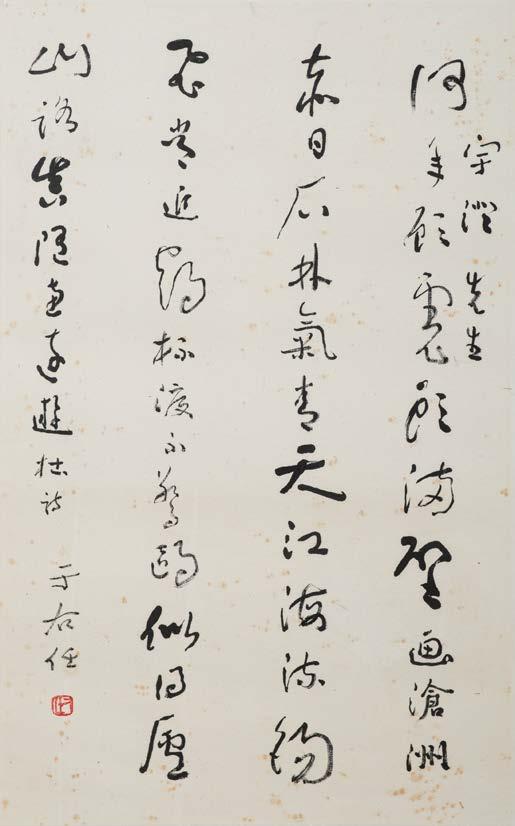 宇澄先生
何年顧虎頭滿壁画滄洲
赤日石林氣青天江海流錫
飛常近鶴杯渡不驚鷗似得廬
山路真隨惠遠遊杜詩 于右任